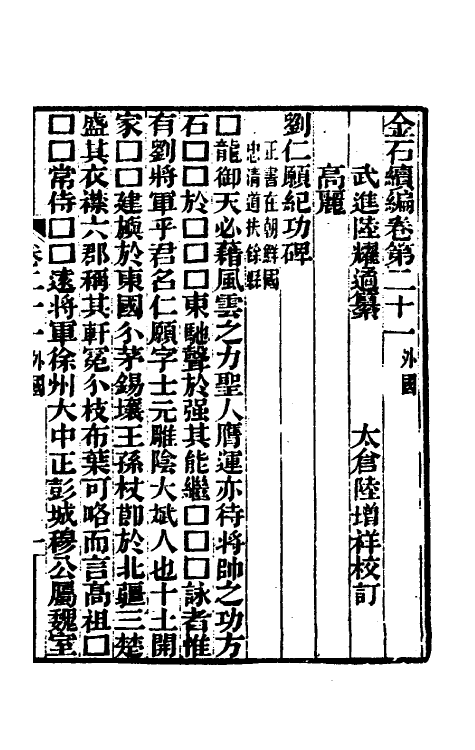 金石續編卷第二十一 外國
武進陸耀遹纂 太倉陸增祥校訂
高麗
劉仁願紀功碑
正書在朝鮮國
忠清道扶餘縣
□龍御天必藉風雲之力聖人膺運亦待將帥之功方
石□□於□□□東馳聲於强其能繼□□□詠者惟
有劉將軍乎君名仁願字士元雕陰大斌人也十土開
家□□建旟於東國分茅錫壤王孫杖節於北疆三楚
盛其衣襟六郡稱其軒冕分枝布葉可略而言高祖□
□□常侍□□遠將軍徐州大中正彭城穆公屬魏室
卷二十一 外國 一